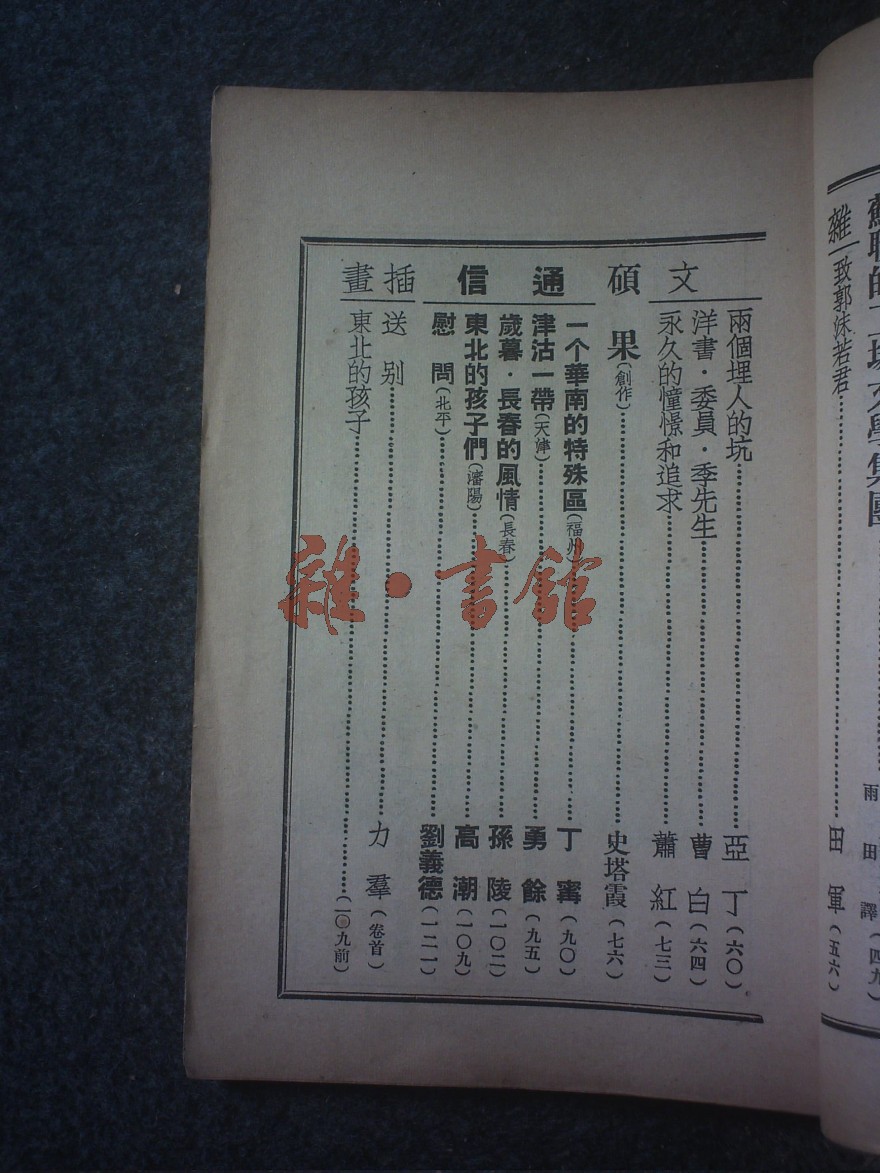 雜
致郭沫若君 田軍（五六）
文
兩個埋人的坑 亞丁（六〇）
洋書·委員·季先生 曹白（六四）
永久的憧憬和追求 蕭紅（七三）
碩果（創作） 史塔霞（七六）
通信
一个華南的特殊區（福州） 丁寗（九〇）
津沽一帶（天津） 勇餘（九五）
歲暮·長春的風情（長春） 孫陵（一〇二）
東北的孩子們（瀋陽） 高潮（一〇九）
慰問（北平） 劉義德（一二一）
插畫
送別 力羣（卷首）
東北的孩子 （一〇九前）
雜·書館